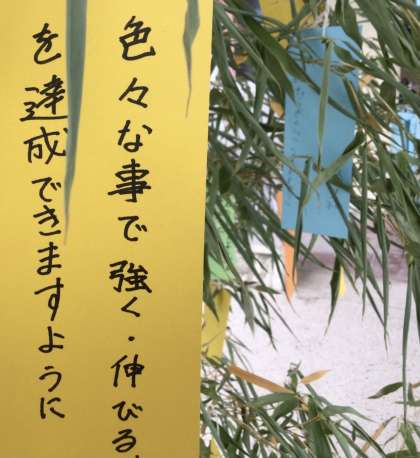 色々な事で強く・伸びる
を達成できますように